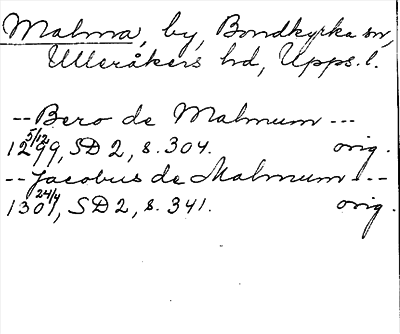 Malma, by, Bondkyrka sn,
Ulleråkers hd, Upps. l.
-- Bero de Malmum ---
1299 5/12, SD 2, s. 304. orig.
-- Jacobus de Malmum ---
1301 24/4, SD 2, s. 341. orig.